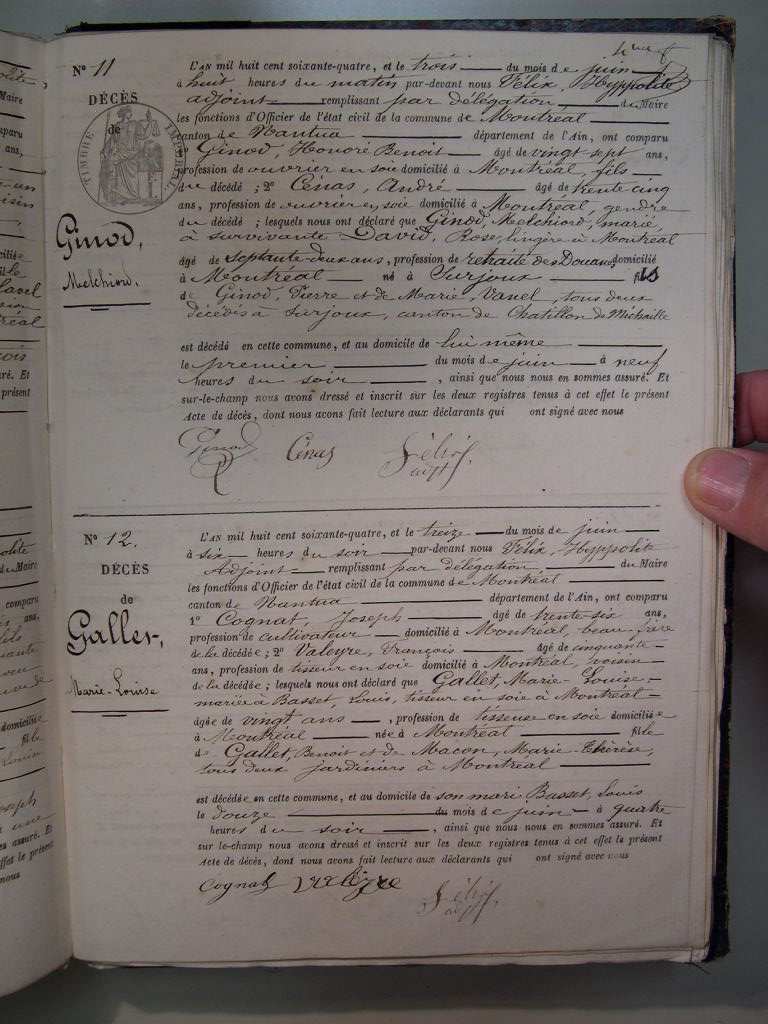 N° 11
DÉCÈS
de
TIMBRE IMPÉRIAL
Ginod,
Melchiord.
L'AN mil huit cent soixante-quatre, et le trois du mois de juin
à huit heures du matin par-devant nous Félix, Hyppolite
adjoint remplissant par délégation, du Maire
les fonctions d'Officier de l'état civil de la commune de Montréal
canton de Nantua département de l'Ain, ont comparu
1° Ginod, Honoré Benoit âgé de vingt-sept ans,
profession de ouvrier en soie domicilié à Montréal, fils
du décédé ; 2° Cénas, André âgé de trente cinq
ans, profession de ouvrier en soie domicilié à Montréal, gendre
du décédé ; lesquels nous ont déclaré que Ginod, Melchiord, marié,
à survivante David, Rose, lingère à Montréal
âgé de septante deux ans, profession de retraité des Douanes, domicilié
à Montréal né à Surjoux fils
de Ginod, Pierre et de Marie Vanel, tous deux
décédés à Surjoux, canton de Chatillon de Michaille
est décédé en cette commune, et au domicile de lui même
le premier du mois de juin à neuf
heures du soir , ainsi que nous nous en sommes assuré. Et
sur-le-champ nous avons dressé et inscrit sur les deux registres tenus à cet effet le présent
Acte de décès, dont nous avons fait lecture aux déclarants qui ont signé avec nous
Ginod Cénas Félix
adjt
N° 12.
DÉCÈS
de
Gallet,
Marie-Louise
L'AN mil huit cent soixante-quatre, et le treize du mois de juin
à six heures du soir par-devant nous Félix, Hyppolite
Adjoint remplissant par délégation, du Maire
les fonctions d'Officier de l'état civil de la commune de Montréal
canton de Nantua département de l'Ain, ont comparu
1° Cognat, Joseph âgé de trente-six ans,
profession de cultivateur domicilié à Montréal, beau frère
de la décédée ; 2° Valeyre, François âgé de cinquante
ans, profession de tisseur en soie domicilié à Montréal, voisin
de la décédée ; lesquels nous ont déclaré que Gallet, Marie-Louise
mariée à Basset, Louis, tisseur en soie à Montréal
âgée de vingt ans , profession de tisseuse en soie domiciliée
à Montréal née à Montréal fille
de Gallet, Benoit et de Macon, Marie-Thérèse,
tous deux jardiniers à Montréal
est décédée en cette commune, et au domicile de son mari Basset, Louis
le douze du mois de juin à quatre
heures du soir , ainsi que nous nous en sommes assuré. Et
sur le-champ nous avons dressé et inscrit sur les deux registres tenus à cet effet le présent
Acte de décès, dont nous avons fait lecture aux déclarants qui ont signé avec nous
Cognat Valeyre Félix
adjt